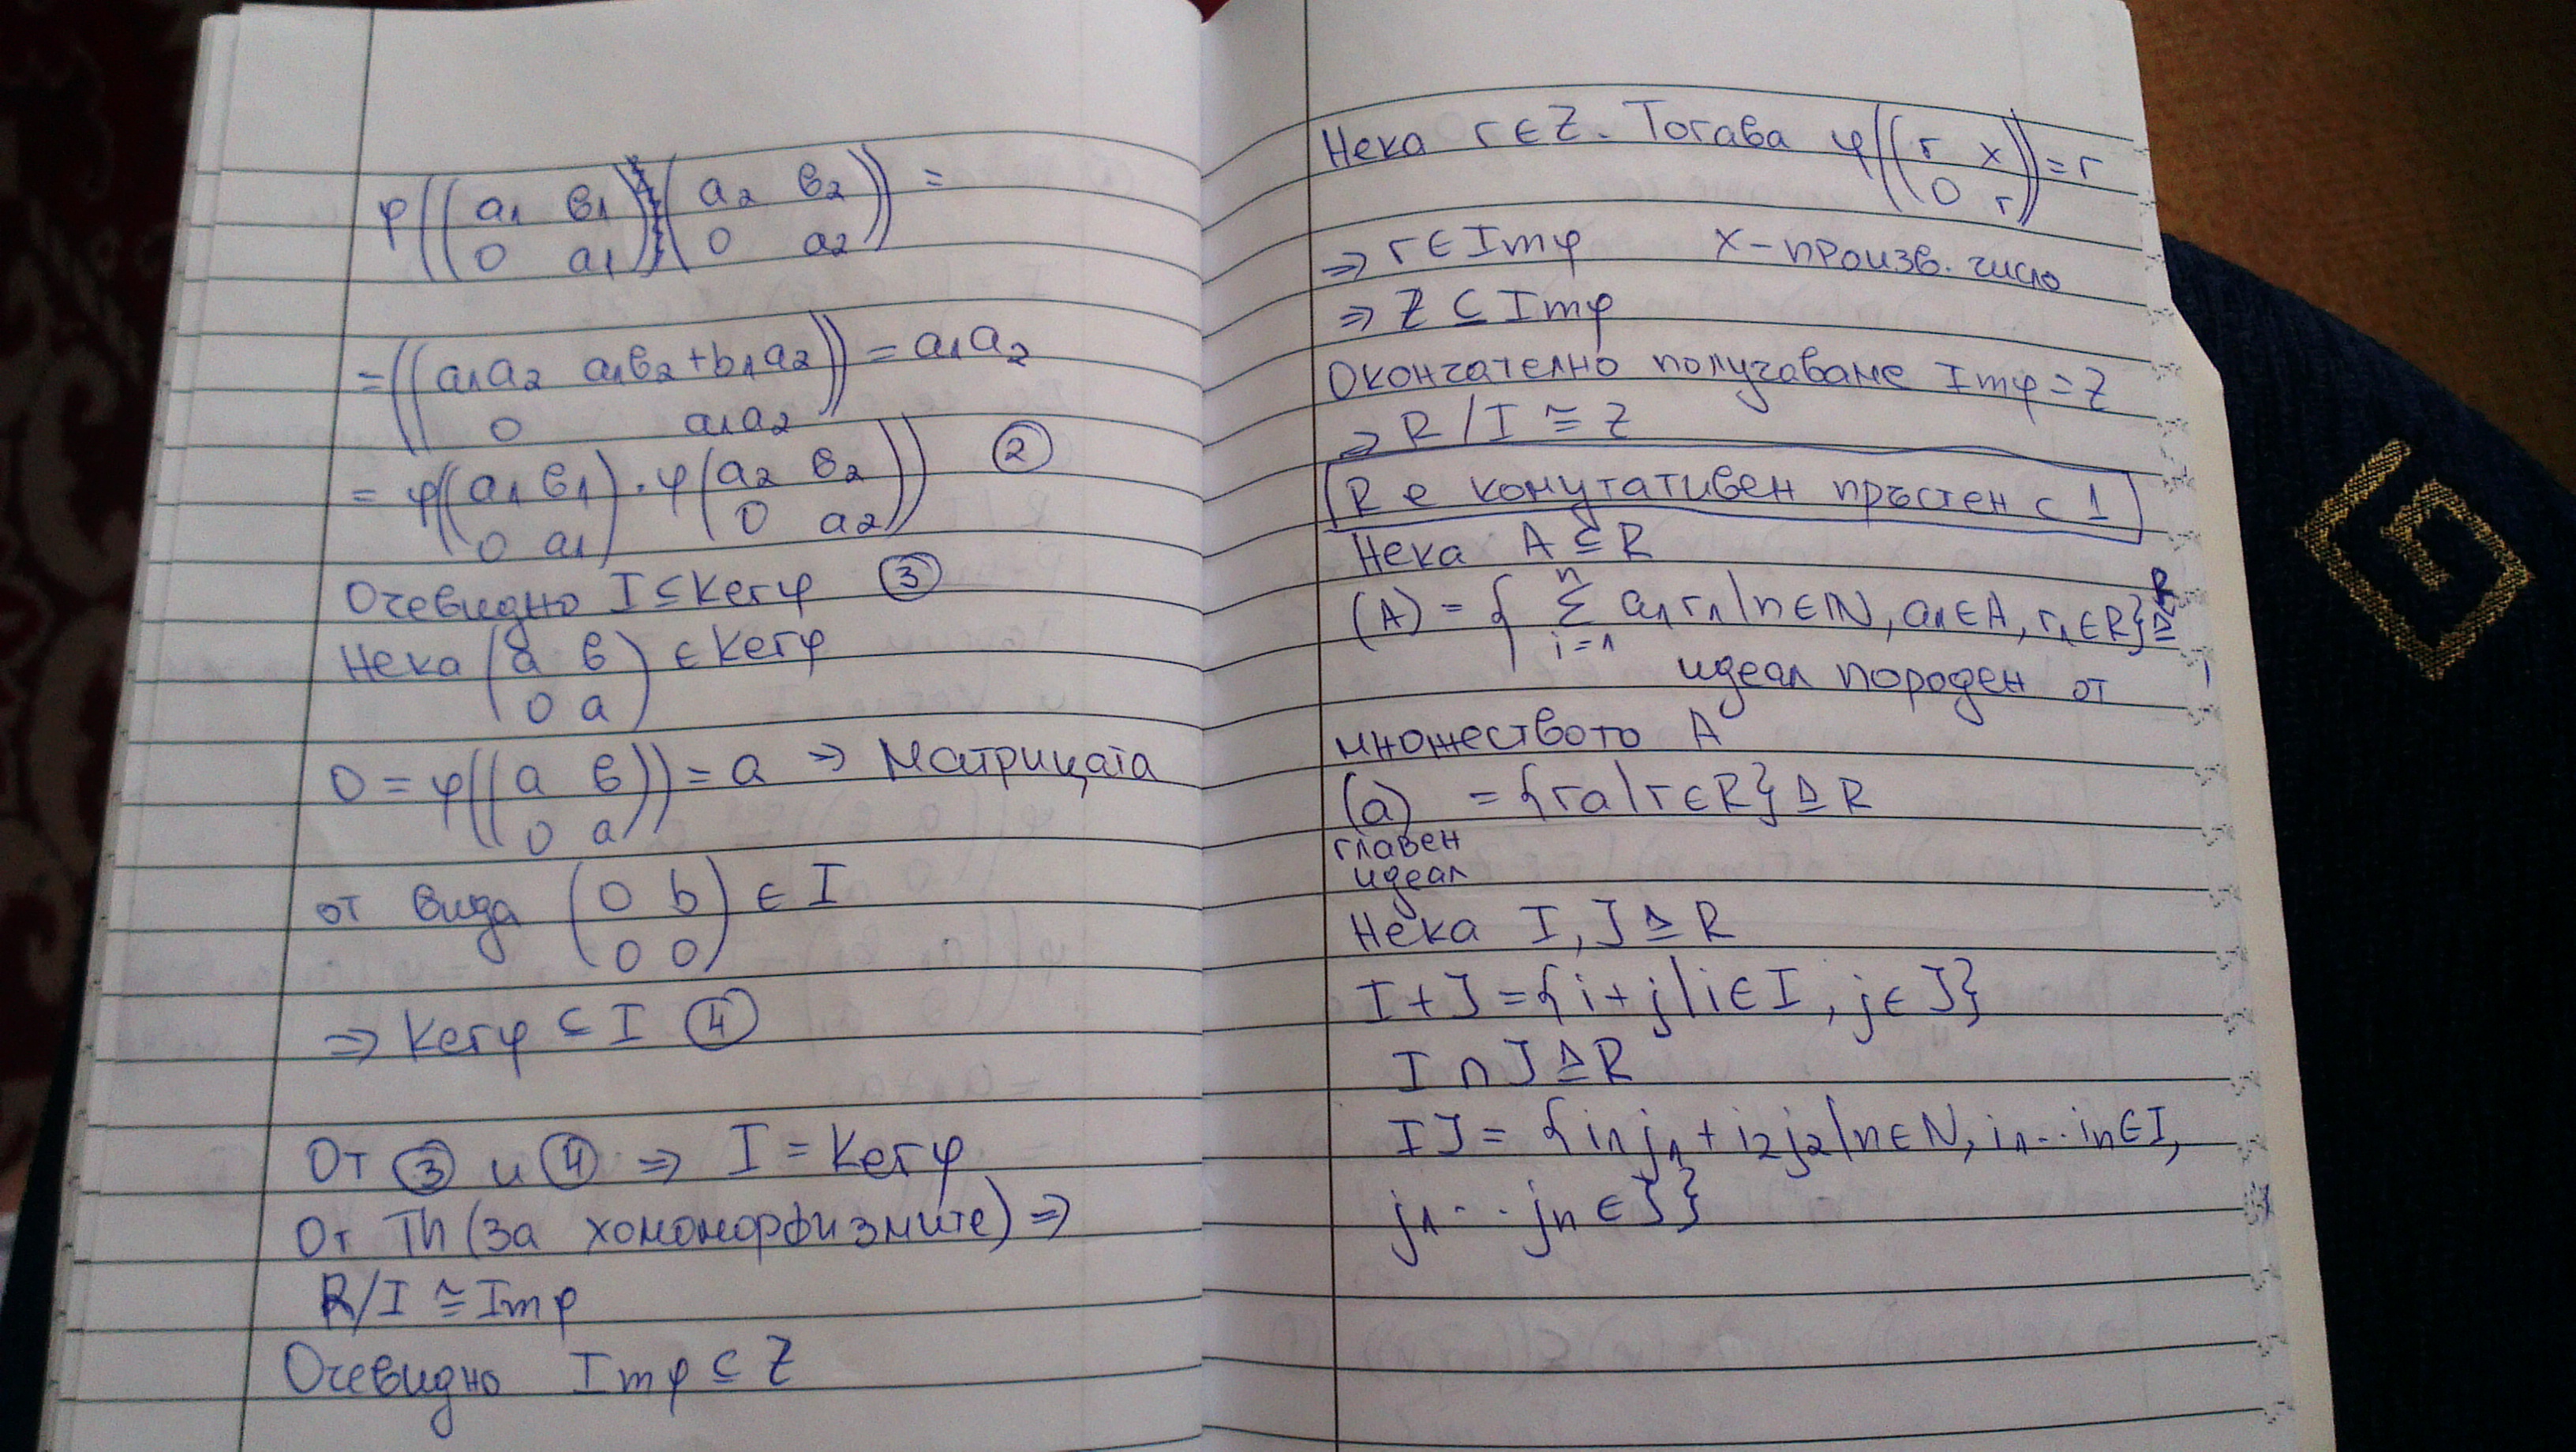 φ((a₁ в₁
0 a₁)(a₂ в₂
0 a₂)) =
= ((a₁a₂ a₁в₂+b₁a₂
0 a₁a₂)) = a₁a₂
= φ((a₁ в₁
0 a₁) · φ(a₂ в₂
0 a₂)) ②
Очевидно I ⊆ Kerφ ③
Нека (a в
0 a) ∈ Kerφ
0 = φ((a в
0 a)) = a ⇒ Матрицата
от вида (0 b
0 0) ∈ I
⇒ Kerφ ⊆ I ④
От ③ и ④ ⇒ I = Kerφ
От Th (за хомоморфизмите) ⇒
R/I ≅ Imφ
Очевидно Imφ ⊆ Z
Нека r ∈ Z. Тогава φ((r x
0 r)) = r
⇒ r ∈ Imφ x – произв. число
⇒ Z ⊆ Imφ
Окончателно получаваме Imφ = Z
⇒ R/I ≅ Z
R е комутативен пръстен с 1
Нека A ⊆ R
(A) = { n Σ i=1 a₁r₁ | n ∈ N, a₁ ∈ A, r₁ ∈ R} ⊴ R
идеал породен от
множеството A
(a) = {ra | r ∈ R} ⊴ R
главен
идеал
Нека I, J ⊴ R
I + J = {i + j | i ∈ I, j ∈ J}
I ∩ J ⊴ R
IJ = {i₁j₁ + i₂j₂ | n ∈ N, i₁ .. iₙ ∈ I,
j₁ .. jₙ ∈ J}